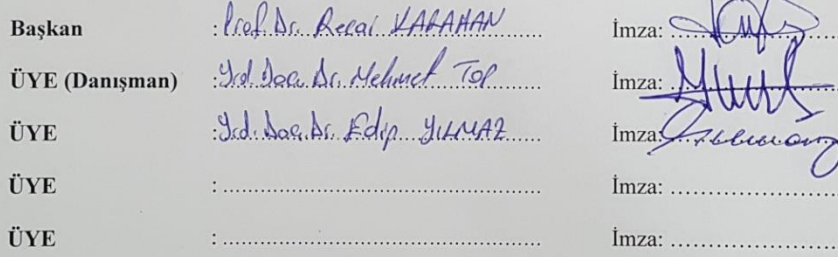 Başkan : Prof. Dr. Recai KARAHAN İmza:
ÜYE (Danışman) : Yrd. Doç. Dr. Mehmet TOP İmza:
ÜYE : Yrd. Doç. Dr. Edip YILMAZ İmza:
ÜYE : İmza:
ÜYE : İmza: